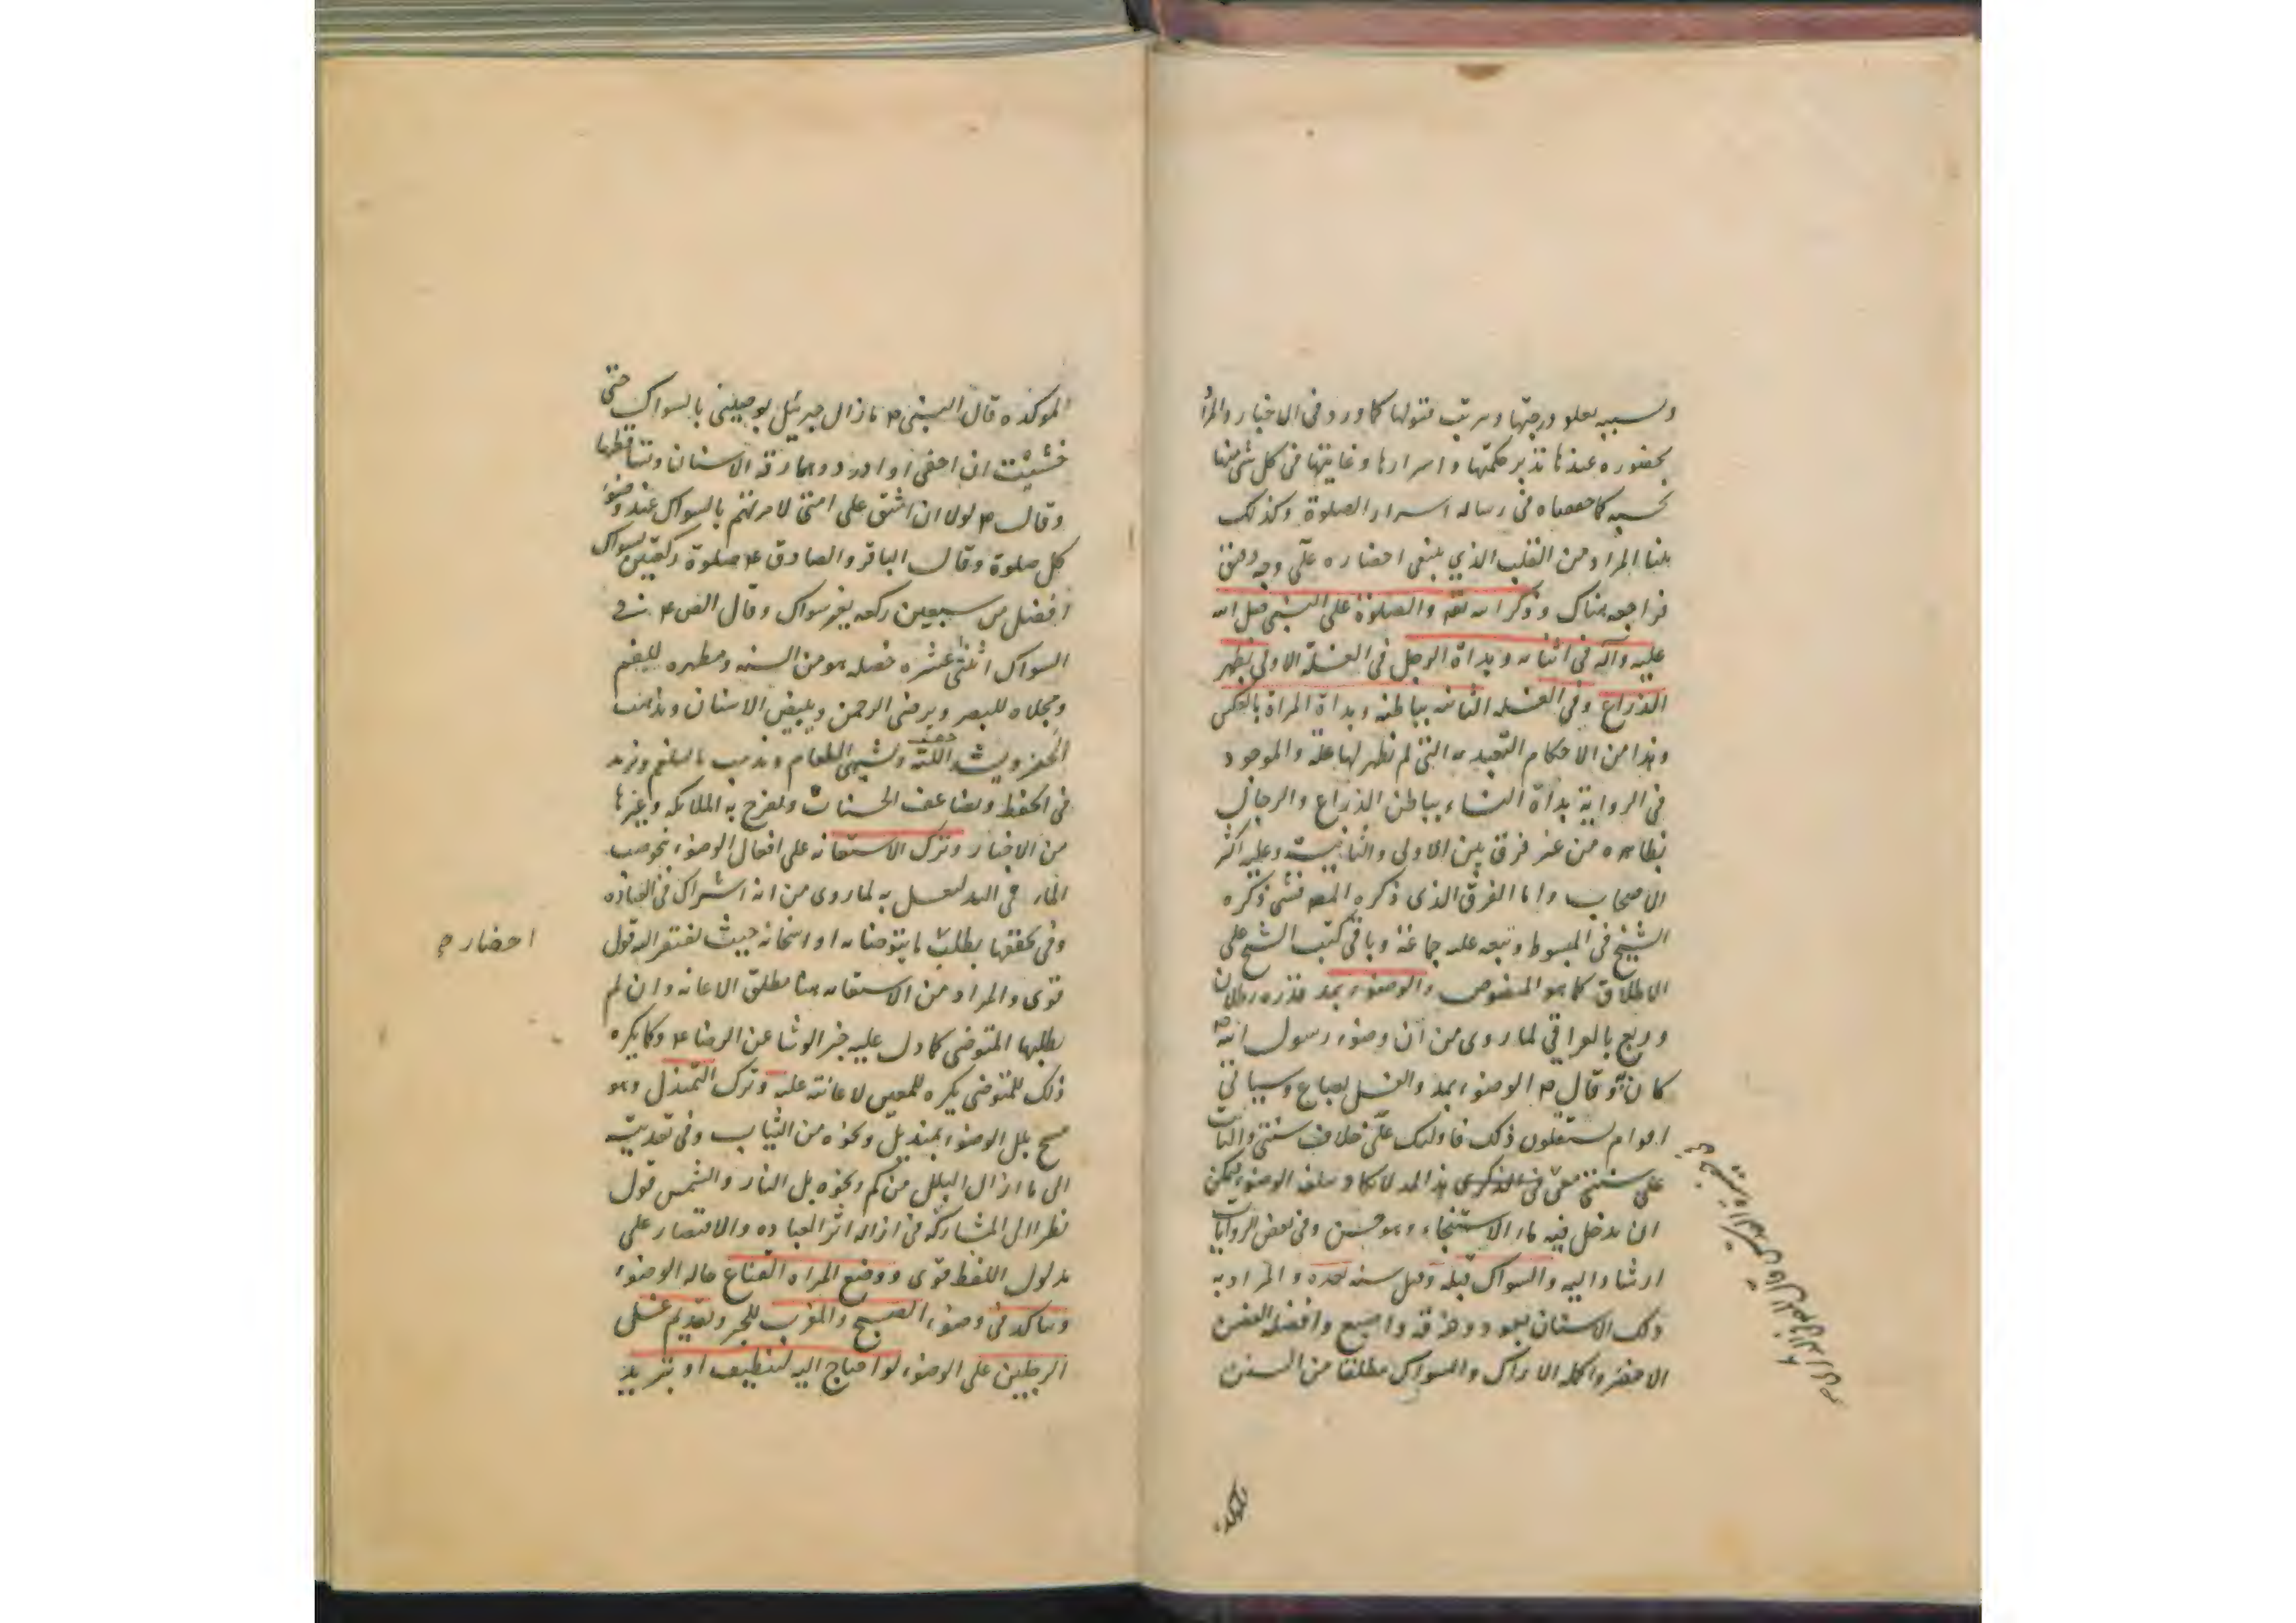 ونسبه يعلو درجتها وترتب قبولها كما ورد في الاخبار والمراد
بحضوره عندها تدبر حكمتها واسرارها وغايتها في كل شئ منها
بحسبه كما حققناه في رساله اسرار الصلوة وكذلك
بينا المراد من القلب الذي ينبغي احضاره على وجه
فراجعه هناك وذكر الله تعه والصلوة على النبي صلى الله
عليه وآله في اثنائه وبداة الرجل في الغسلة الاولى بظهر
الذراع وفي الغسله الثانيه بباطنه وبداة المراة بالعكس
وهذا من الاحكام التعبديه التي لم تظهر لها علة والموجود
في الرواية بداة النساء بباطن الذراع والرجال
بظاهره من غير فرق بين الاولى والثانية وعليه اكثر
الاصحاب واما الفرق الذي ذكره المصـ فشئ ذكره
الشيخ في المبسوط وتبعه عليه جماعة وباقي كتب الشيخ على
الاطلاق كما هو المنصوص والوضوء بمد قدره رطلان
وربع بالعراقي لما روى من ان وضوء رسول الله ص
كان به وقال ص الوضوء بمد والغسل بصاع وسياتي
اقوام يستقلون ذلك فاولئك على خلاف سنتي والثابت
على سنتي معي في الذكرى هذا المد لا يكاد يبلغه الوضوء فيمكن
ان يدخل فيه ماء الاستنجاء وهو حسن وفي بعض الروايات
ارشاد اليه والسواك قبله وقبل سنه بعده والمراد به
دلك الاسنان بعود وخرقة واصبع وافضله الغصن
الاخضر واكمله الاراك والسواك مطلقا من السنن
الموكده
الموكده قال النبي ص ما زال جبرئيل يوصيني بالسواك حتى
خشيت ان احفى او ادرد وهما رقة الاسنان وتساقطها
وقال ص لولا ان اشق على امتي لامرتهم بالسواك عند وضوء
كل صلوة وقال الباقر والصادق ع صلوة ركعتين بسواك
افضل من سبعين ركعه بغير سواك وقال الصـ ع في
السواك اثنتى عشره خصله هو من السنه ومطهره للفم
ومجلاه للبصر ويرضى الرحمن ويبيض الاسنان ويذهب
الحفر ويشد اللثة ويشهى الطعام ويذهب بالبلغم ويزيد
في الحفظ ويضاعف الحسنات وتفرح به الملائكه وغيرها
من الاخبار وترك الاستعانه على افعال الوضوء بنحو صب
الماء في اليد ليغسل به لما روى من انه اشراك في العباده
وفي تحققها بطلب ما يتوضا به او اسخانه حيث يفتقر اليه قول
احضار ه
قوى والمراد من الاستعانه هنا مطلق الاعانه وان لم
يطلبها المتوضى كما دل عليه خبر الوشا عن الرضا ع وكما يكره
ذلك للمتوضى يكره للمعين لاعانته عليه وترك التمندل وهو
مسح بلل الوضوء بمنديل ونحوه من الثياب وفي تعديته
الى ما ازال البلل من كم ونحوه بل النار والشمس قول
نظرا الى المشاركة في ازاله اثر العباده والاقتصار على
مدلول اللفظ قوى ووضع المراه القناع حاله الوضوء
ويتاكد في وضوء الصبح والمغرب للخبر وتقديم غسل
الرجلين على الوضوء لو احتاج اليه لتنظيف او تبريد